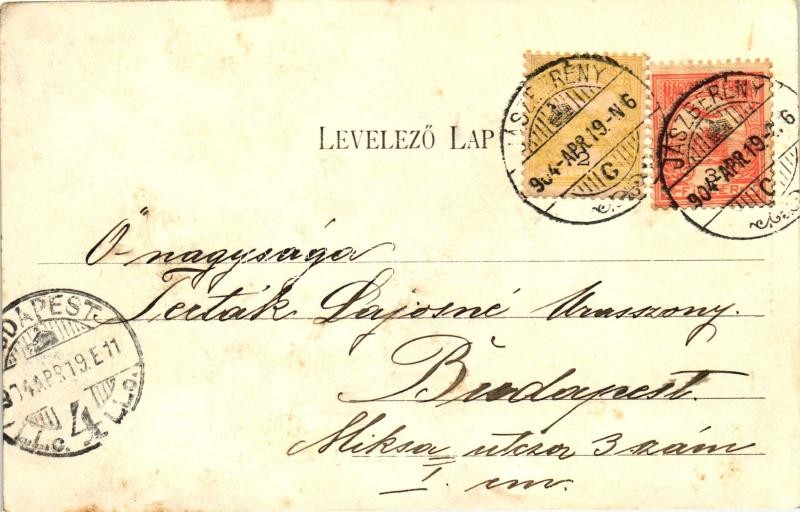 JÁSZBERÉNY
904 APR 19-N6
C
2
JÁSZBERÉNY
904 APR 19
C
LEVELEZŐ LAP
Ő-nagysága
Terták Lajosné Urasszony.
Budapest.
Miksa utcza 3 szám
I. em.
BUDAPEST
APR 19.E 11
4